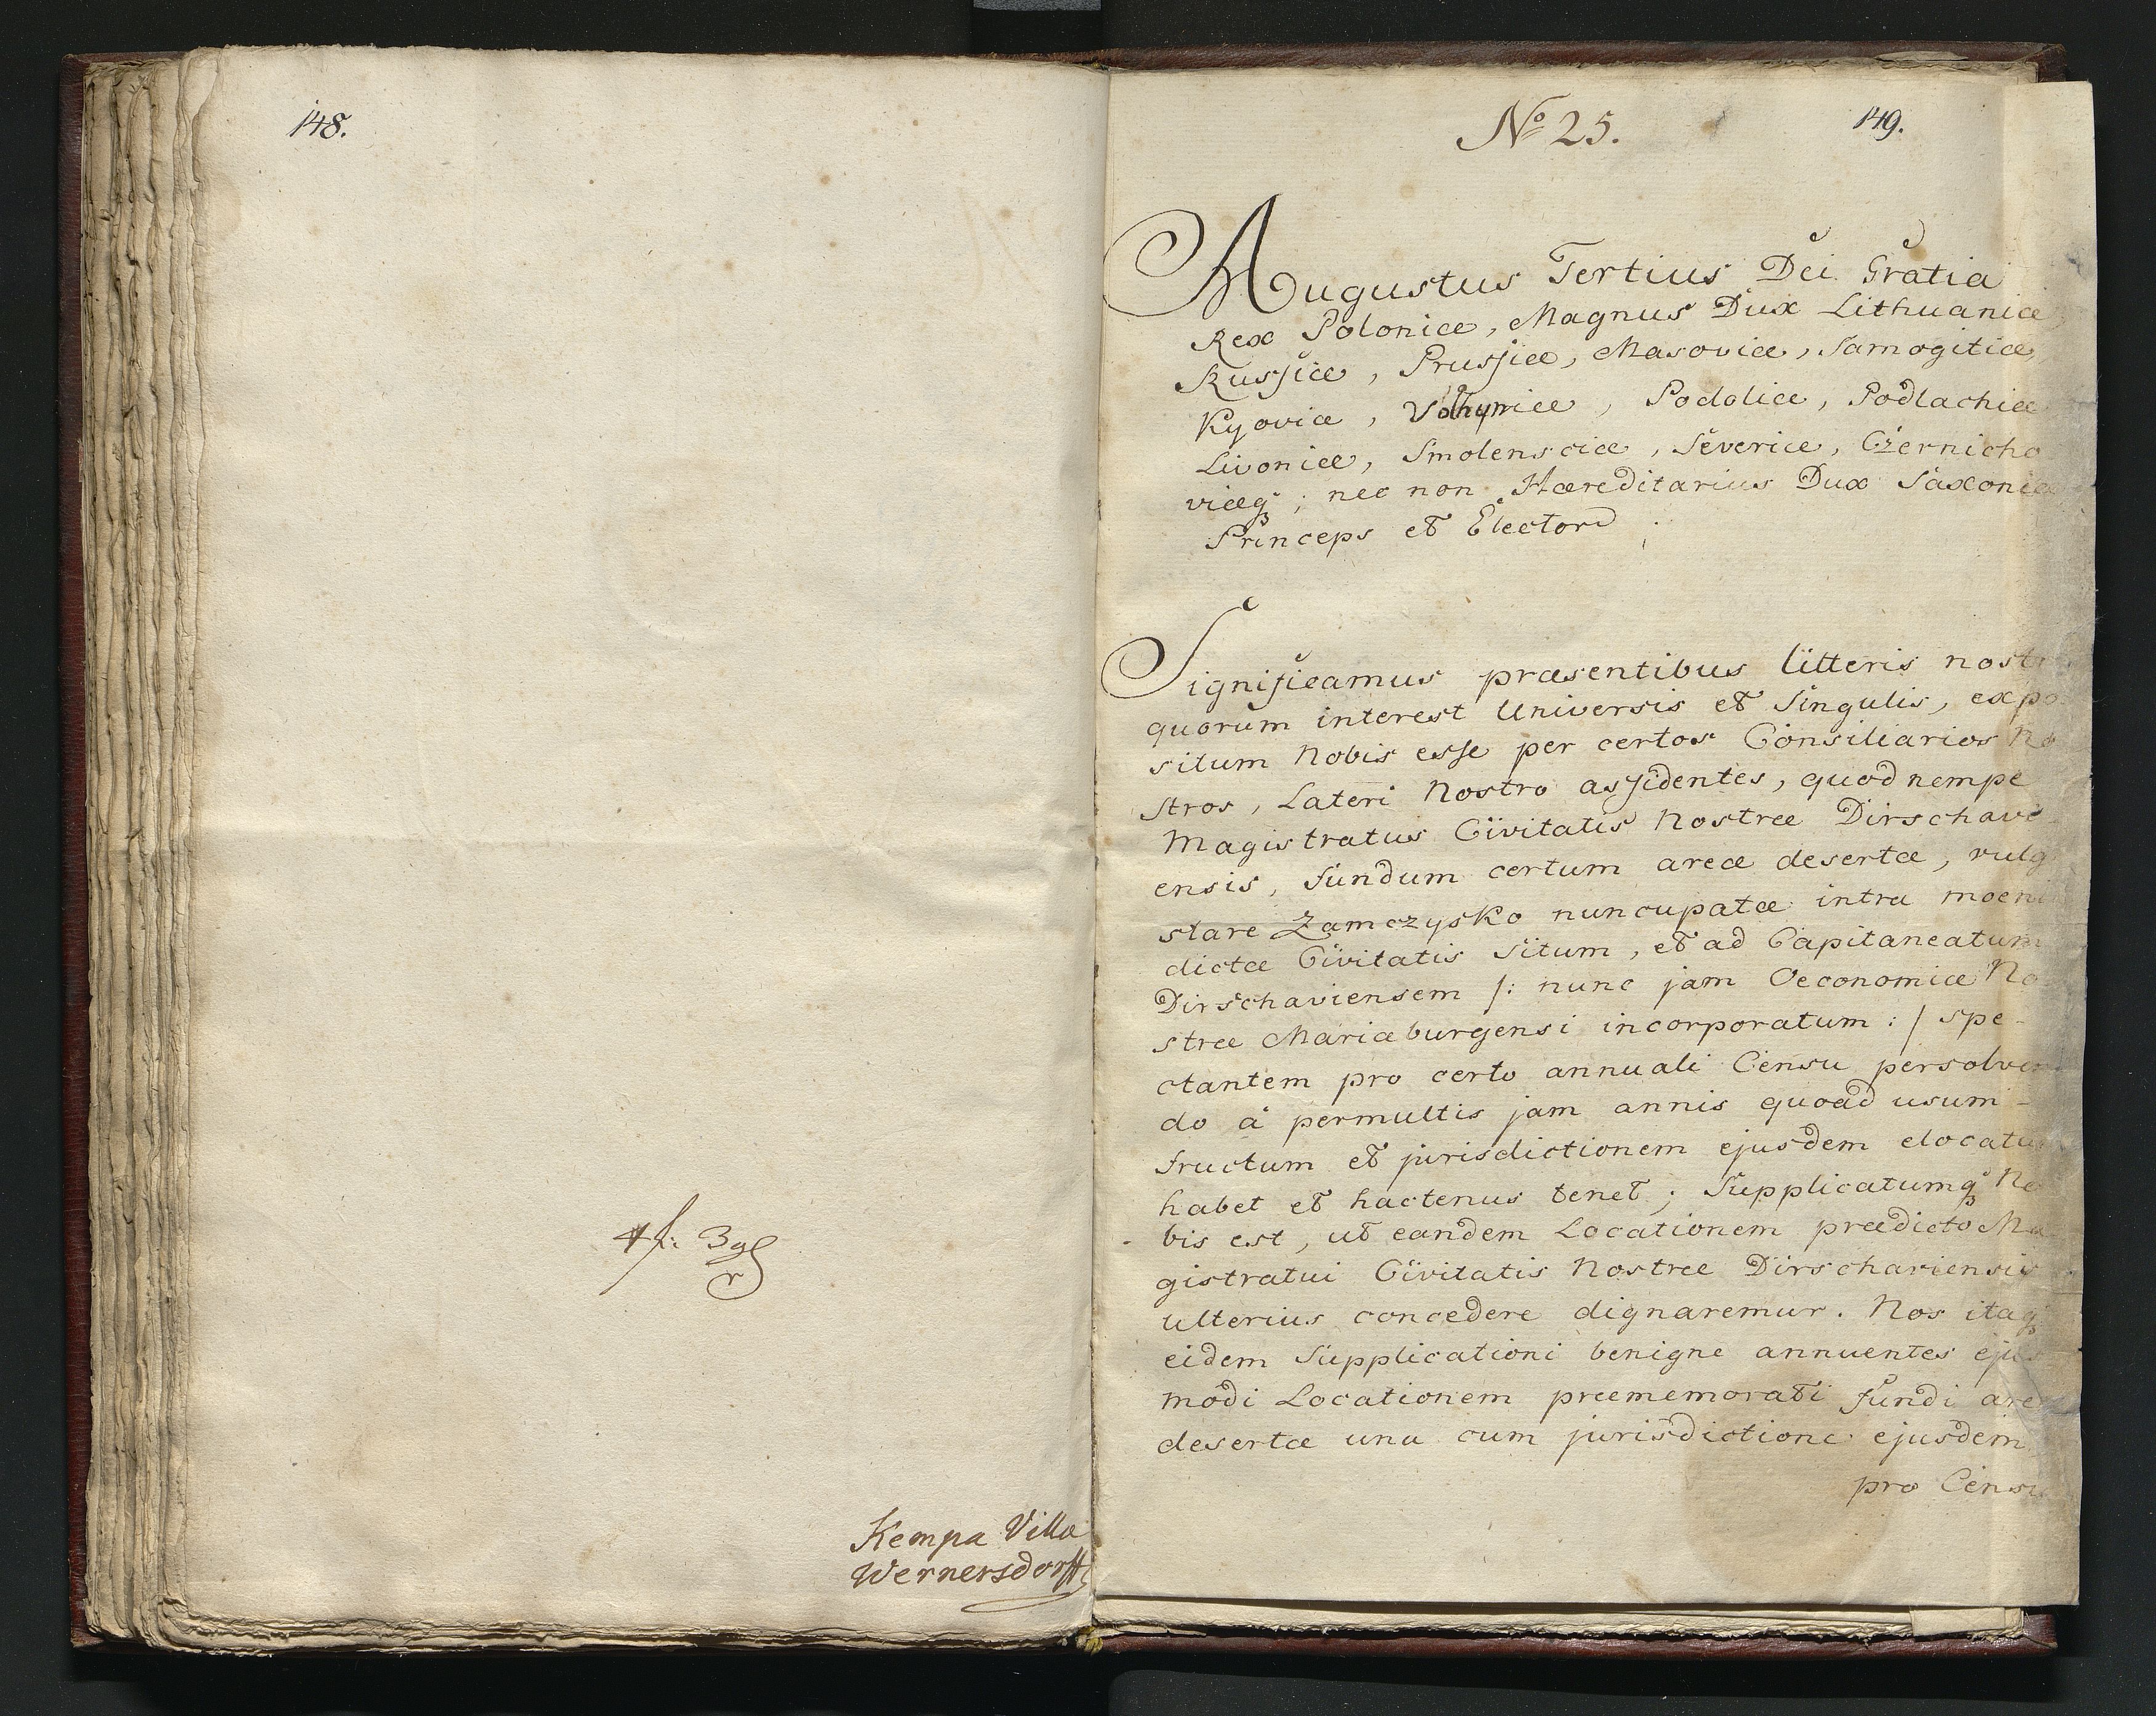 148.
4 f: 3 gr
Kempa Villa
Wernersdorff
No 25.
149.
Augustus Tertius Dei Gratia
Rex Poloniæ, Magnus Dux Lithuaniæ
Russiæ, Prussiæ, Masoviæ, Samogitiæ,
Kyoviæ, Volhyniæ, Podoliæ, Podlachiæ
Livoniæ, Smolensciæ, Severiæ, Czernicho
viæq; nec non Hæreditarius Dux Saxoniæ
Princeps et Elector.
Significamus præsentibus litteris nostr
quorum interest Universis et Singulis, expo
situm Nobis esse per certos Consiliarios No
stros, Lateri Nostro assidentes, quod nempe
Magistratus Civitatis Nostræ Dirschavi-
ensis, Fundum certum areæ desertæ, vulg
stare Zamczysko nuncupatæ intra moeni
dictæ Civitatis Situm, et ad Capitaneatum
Dirschaviensem /: nunc jam Oeconomiæ No
stræ Mariæburgensi incorporatum :/ spe-
ctantem pro certo annuali Censu persolven
do à permultis jam annis quoad usum-
fructum et jurisdictionem ejusdem elocatu
habet et hactenus tenet; Supplicatumq No
bis est, ut eandem Locationem prædicto Ma
gistratui Civitatis Nostræ Dirschaviensis
ulterius concedere dignaremur. Nos itaq
eidem Supplicationi benigne annuentes ejus
modi Locationem præmemorati fundi areæ
desertæ una cum jurisdictione ejusdem
pro Censu